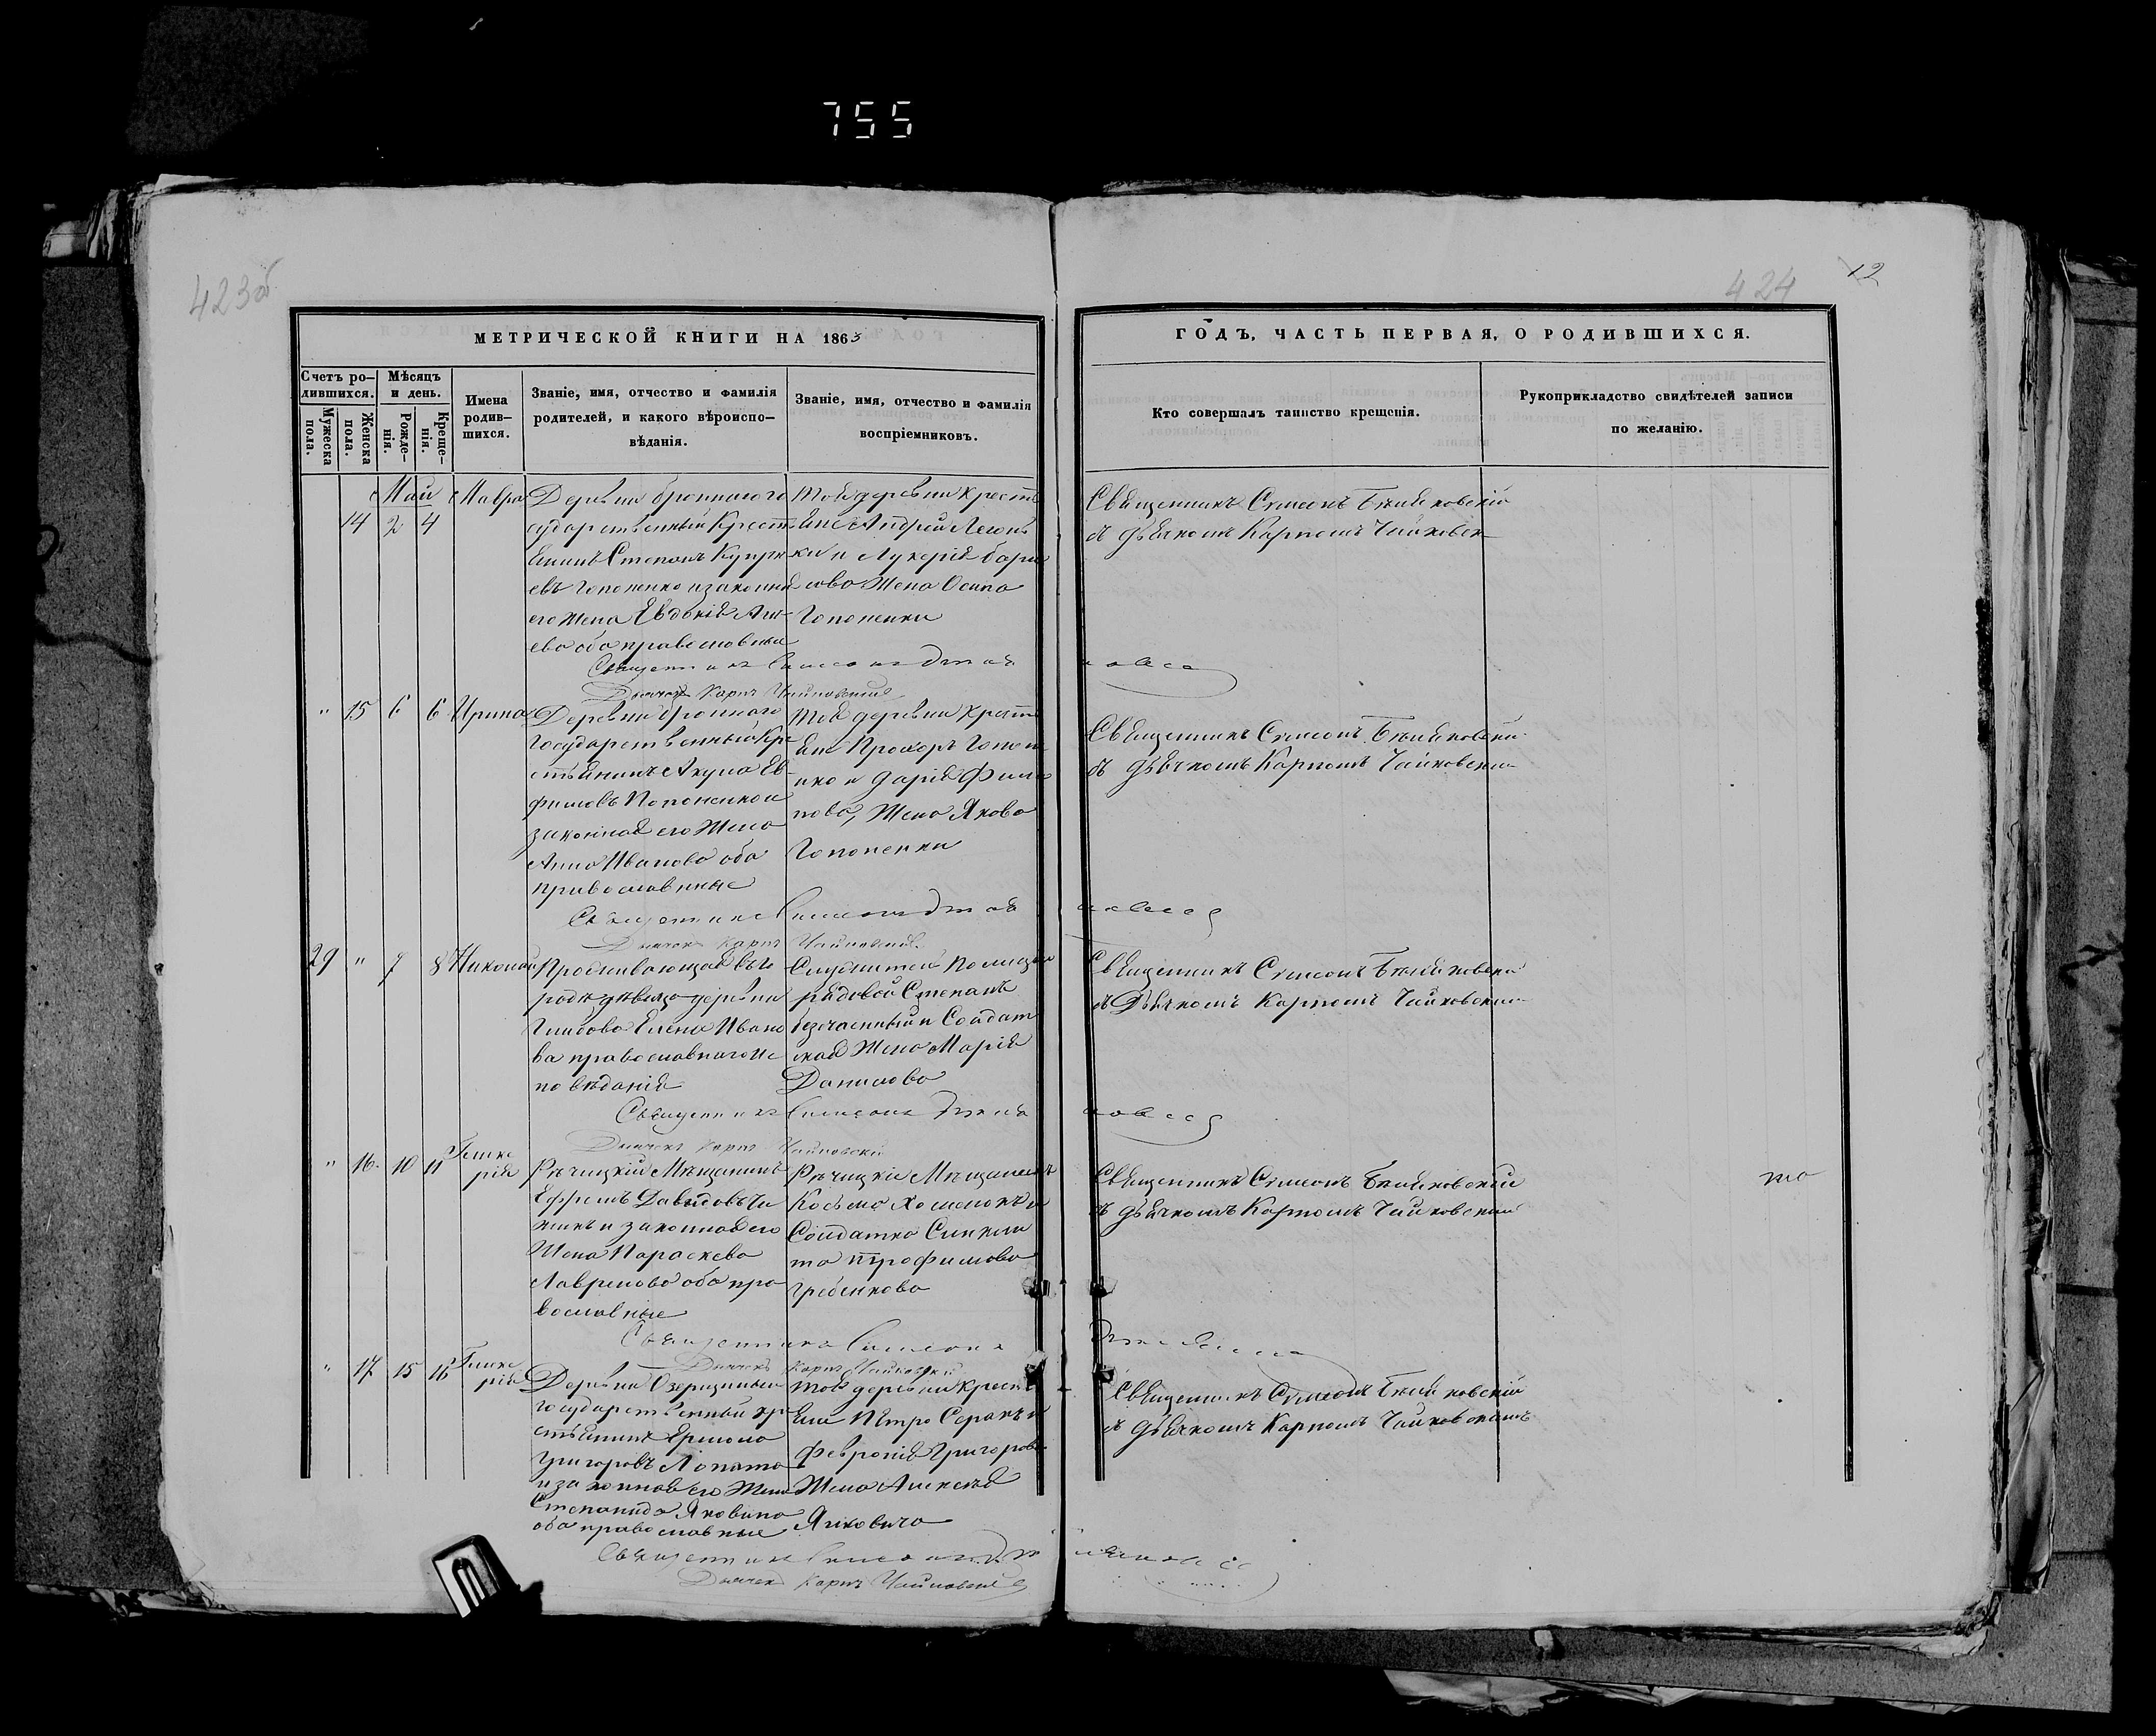 755
423об
424
12
МЕТРИЧЕСКОЙ КНИГИ НА 1863
ГОДЪ, ЧАСТЬ ПЕРВАЯ, О РОДИВШИХСЯ.
Счетъ ро-
дившихся.
Мужеска
пола.
Женска
пола.
Мѣсяцъ
и день.
Рожде-
нія.
Креще-
нія.
Имена
родив-
шихся.
Званіе, имя, отчество и фамилія
родителей, и какого вѣроиспо-
вѣданія.
Званіе, имя, отчество и фамилія
воспріемниковъ.
Кто совершалъ таинство крещенія.
Рукоприкладство свидѣтелей записи
по желанію.
Май
14 2 4
Мавра
Деревни броннаго го
сударственный Крест
янинъ Степанъ Купрѣ
евъ Гопоненко и законная
его Жена Евдокія
ева оба православные
Той деревни Крестья
яне Андрей
и Лукерія бори
сова Жена Осипа
Гопоненки
Священникъ Симеонъ
съ дьячкомъ Карпомъ Чайковск
Священникъ Симеонъ
Дьячекъ Карпъ Чайковскій
" 15 6 6 Ирина
Деревни броннаго
Государственный Кре
стьянинъ Акула Ев
фимовъ Гопоненко и
законная его Жена
Анна Иванова оба
православные
Той деревни Кресть
яне Прохоръ Гопоне
нко и Дарія Фили
пова, Жена Якова
Гопоненки
Священникъ Симеонъ
съ дьячкомъ Карпомъ Чайковским
Священникъ Симеонъ
Дьячекъ Карпъ Чайковскій
29 " 7 8 Николай
Проживающая въ го
родѣ дѣвица деревни
Глыбова Елена Ивано
ва православнаго ис
повѣданія
Служитель Полиціи
рядовой Степанъ
безчасный и Солдат
ская Жена Марія
Данилова
Священникъ Симеонъ
съ Дьячкомъ Карпомъ Чайковским
Священникъ Симеонъ
Дьячекъ Карпъ Чайковскій
" 16 10 11 Глике
рія
Рѣчицкій Мѣщанинъ
Ефремъ Давыдовъ
и законная его
Жена Параскева
Лаврѣнова оба пра
вославные
Рѣчицкіе Мѣщане
Косьма Хоменокъ и
Солдатка Синкли
та трофимова
гребенкова
Священникъ Симеонъ
съ дьячкомъ Карпомъ Чайковским
то
Священникъ Симеонъ
Дьячекъ Карпъ Чайковскій
" 17 15 16 Глике
рія
Деревни Озерщины
государственный кре
стьянинъ Ермола
Григоровъ Лопата
и законная его Жена
Степанида Яковлева
оба православные
Той деревни Кресть
яне Петро Серакъ и
Февронія Григорова
Жена Алексѣя
Яцковича
Священникъ Симеонъ
съ дьячкомъ Карпомъ Чайковскимъ
Священникъ Симеонъ
Дьячекъ Карпъ Чайковскій